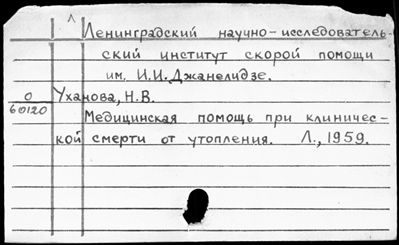 Ленинградский научно-исследователь-
ский институт скорой помощи
им. И.И.Джанелидзе.
О Уханова, Н.В.
60120
Медицинская помощь при клиничес-
кой смерти от утопления. Л., 1959.